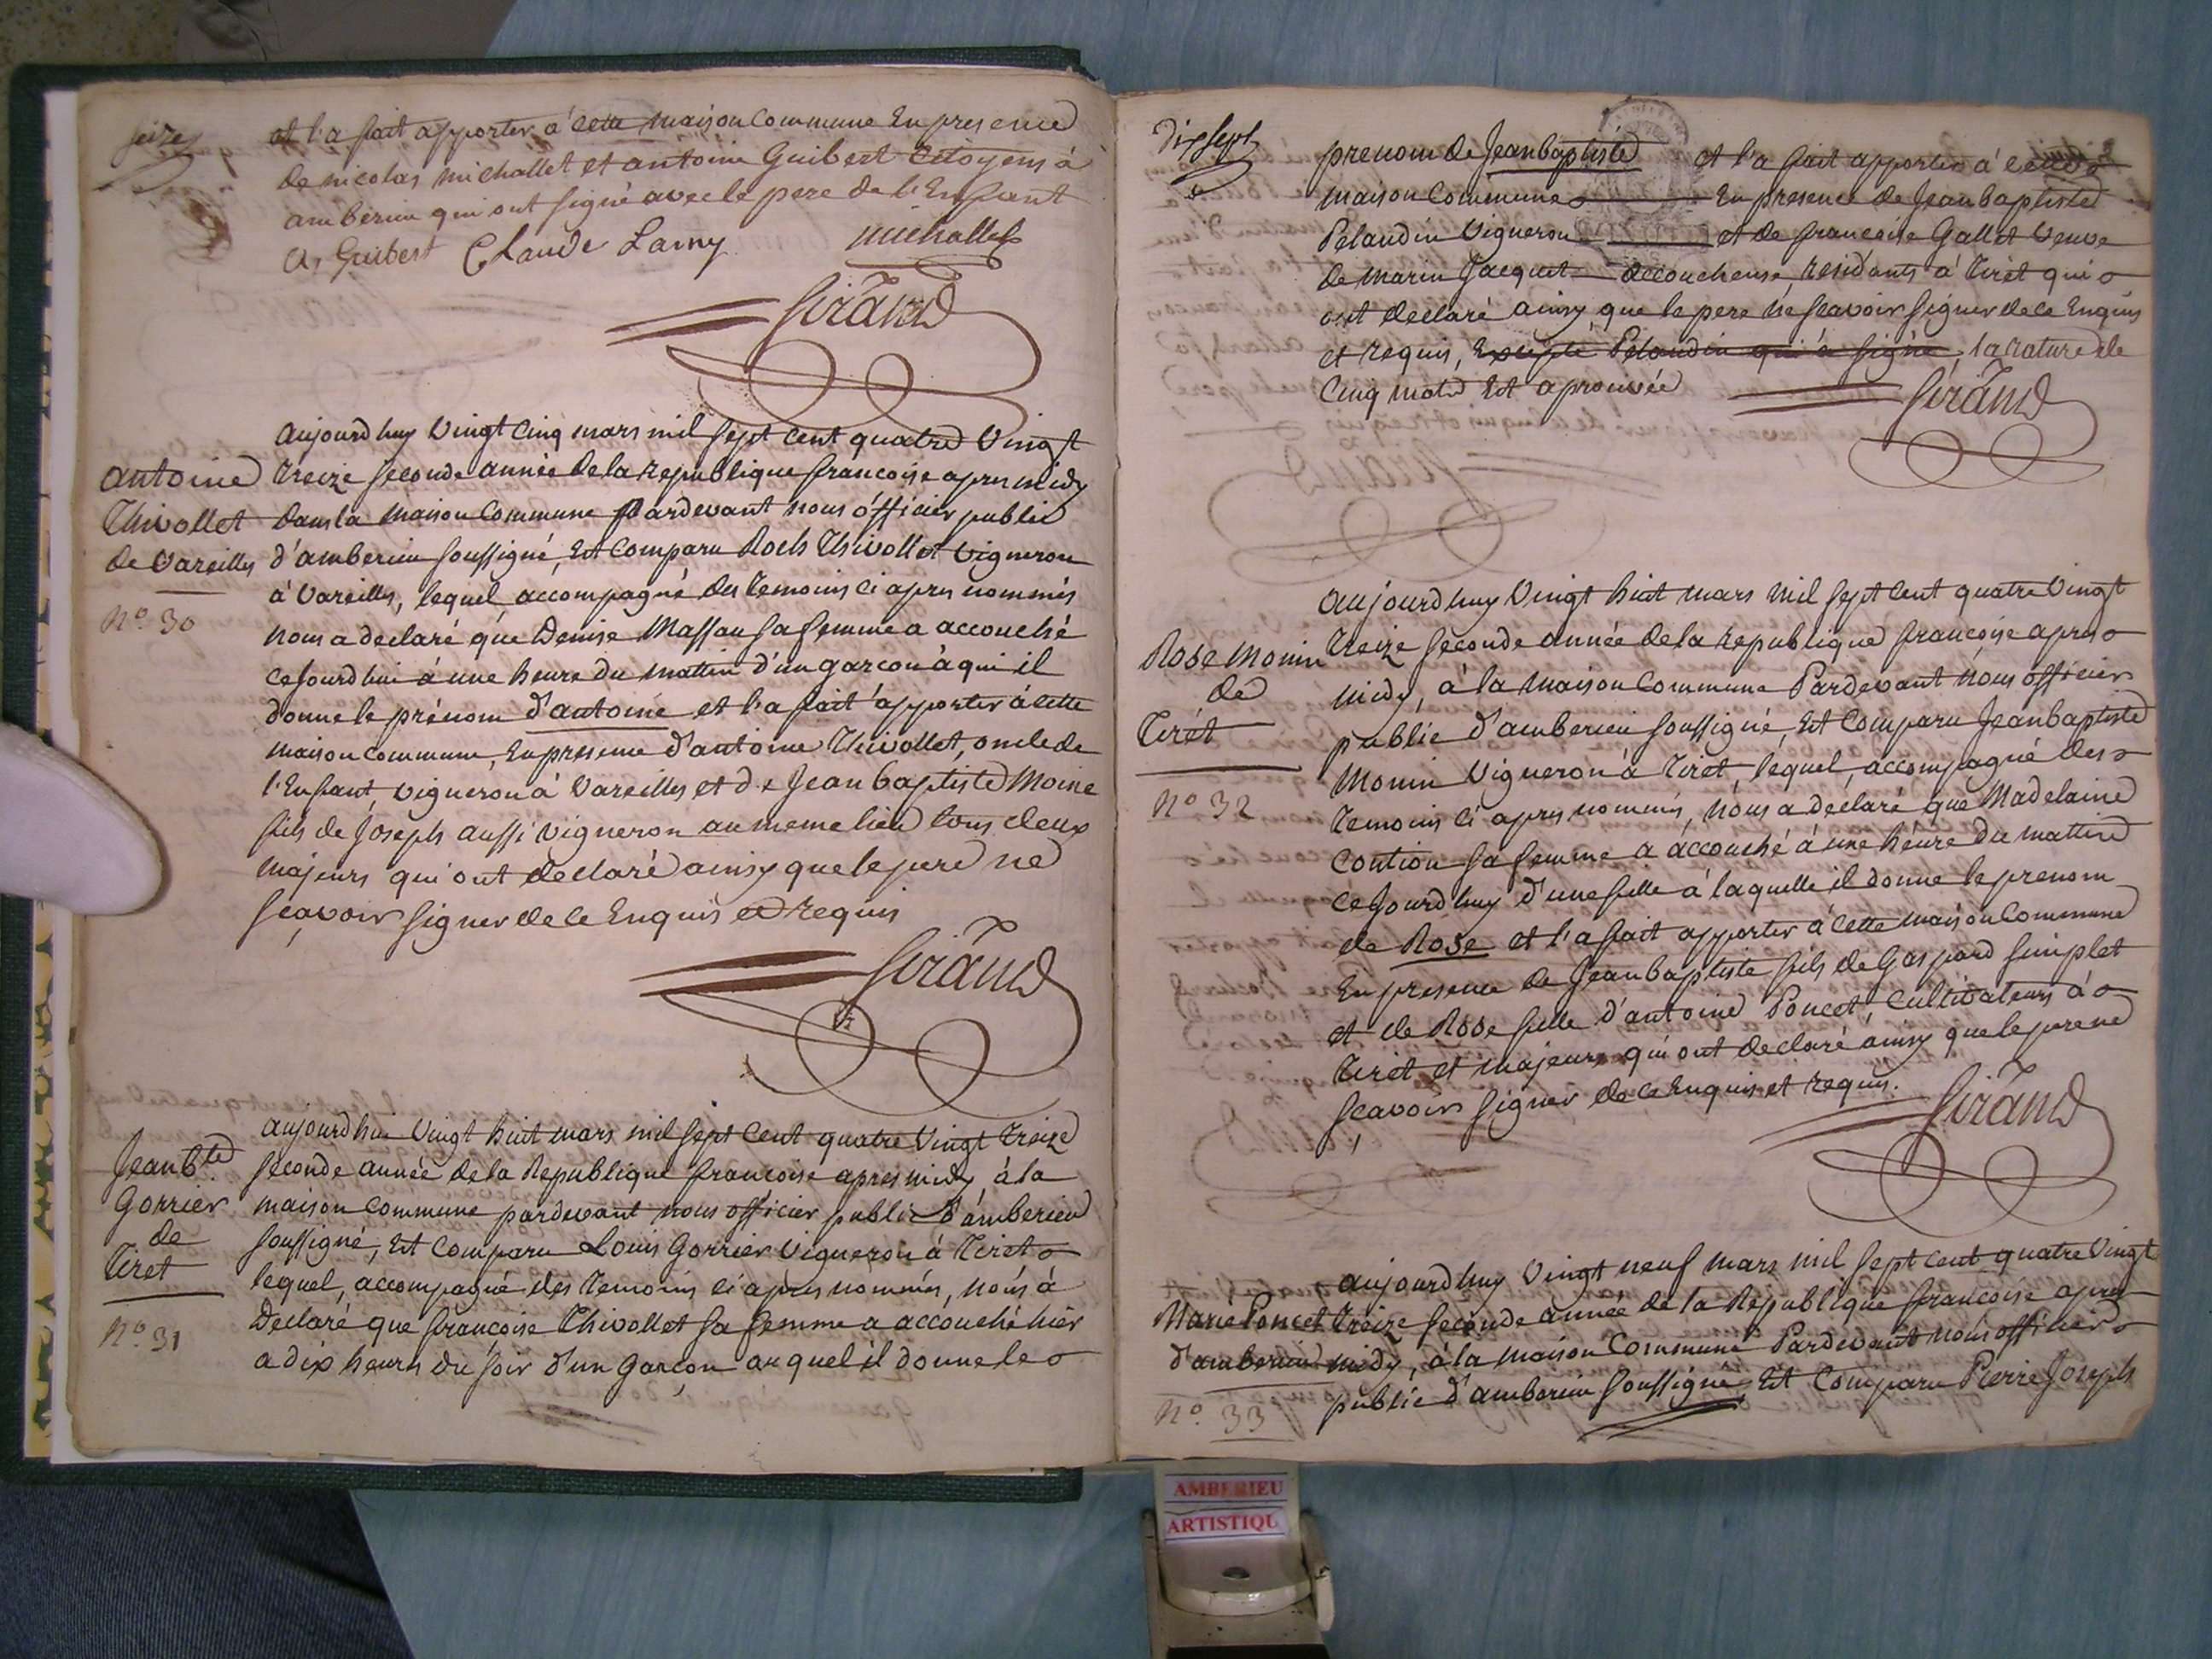 seize
et l'a fait apporter à cette maison commune En presence
de nicolas michallet et antoine Guibert citoyens à
amberieu qui ont signé avec le pere de l'Enfant
A, Guibert Claude Larny michallet
Sirand
aujourdhuy vingt cinq mars mil sept cent quatre vingt
antoine Thivollet de Vareilles
N.º 30
treize seconde année de la republique francoise apres midy
dans la maison commune Pardevant nous officier public
d'amberieu soussigné, Est comparu Roch Thivollet vigneron
à Vareilles, lequel, accompagné des temoins ci apres nommés
nous a declaré que Denise Massau sa femme a accouché
cejourdhui à une heure du mattin d'un garcon à qui il
donne le prénom d'antoine et l'a fait apporter à cette
maison commune, En presence d'antoine Thivollet, oncle de
l'Enfant, vigneron à Vareilles et de Jean baptiste Moine
fils de Joseph aussi vigneron au meme lieu tous deux
majeurs qui ont declaré ainsy que le pere ne
scavoir signer de ce Enquis et requis
Sirand
aujourdhui vingt huit mars mil sept cent quatre vingt treize
Jean Bte.
Gorrier
de
Tiret
N.º 31
seconde année de la Republique francoise apres midy, à la
maison commune pardevant nous officier public d'amberieu
soussigné, Est comparu Louis Gorrier vigneron à Tiret
lequel, accompagné des temoins ci apres nommés, nous à
Declaré que francoise Thivollet sa femme a accouché hier
a dix heures du soir d'un garcon auquel il donne le
dix sept
prenom de Jean baptiste et l'a fait apporter à cette
maison commune En presence de Jean baptiste
Pelaudin vigneron et de francoise Gallet veuve
de marin Jacquet accoucheuse, residants à Tiret qui
ont declaré ainsy que le pere ne scavoir signer de ce Enquis
et requis, Excepté Pelaudin qui a signé, la rature de
Cinq mots Est aprouvée
Sirand
aujourdhuy vingt huit mars mil sept cent quatre vingt
Rose Monin
de
Tirét
N.º 32
treize seconde année de la republique francoise apres
midy, à la maison commune Pardevant nous officier
public d'amberieu soussigné, Est comparu Jean baptiste
Monin vigneron à Tiret, lequel, accompagné des
temoins ci apres nommés, nous a declaré que Madelaine
Coution sa femme a accouché à une heure du mattin
cejourdhuy d'une fille à laquelle il donne le prenom
de Rose et l'a fait apporter à cette maison commune
En presence de Jean baptiste fils de Gaspard simplet
et de Rose fille d'antoine Poncet, cultivateurs à
Tiret et majeurs qui ont declaré ainsy que le pere ne
scavoir signer de ce Enquis et requis.
Sirand
aujourdhuy vingt neuf mars mil sept cent quatre vingt
Marie Poncet
d'amberieu
N.º 33
treize seconde année de la Republique francoise apres
midy, à la maison commune Pardevant nous officier
public d'amberieu soussigné, Est comparu Pierre Joseph
AMBERIEU
ARTISTIQU